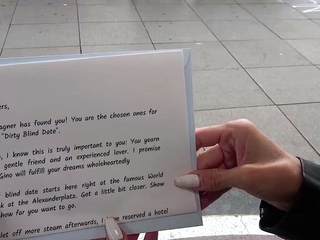 ers,
agner has found you! You are the chosen ones for
"Dirty Blind Date".
, I know this is truly important to you: You yearn
gentle friend and an experienced lover. I promise
Gino will fulfill your dreams wholeheartedly
blind date starts here right at the famous World
k at the Alexanderplatz. Get a little bit closer. Show
how far you want to go.
let off more steam afterwards, I have reserved a hotel